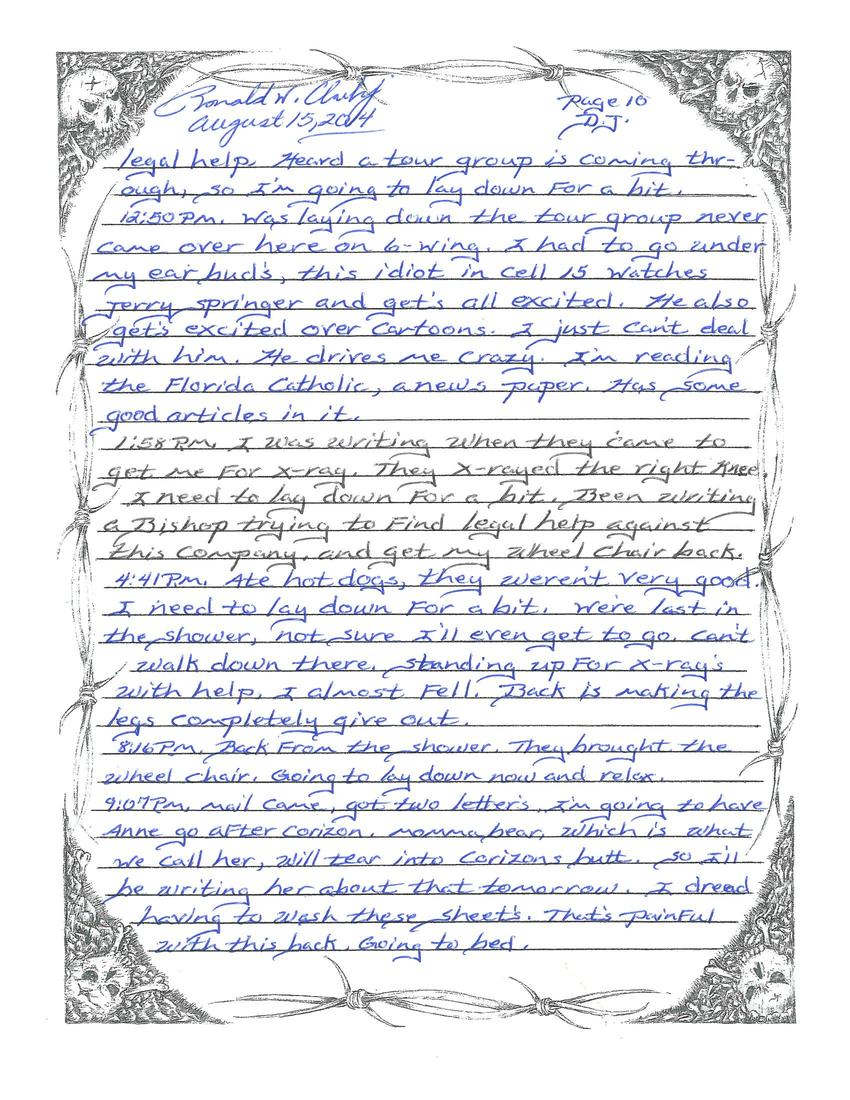 Ronald W. Clark Jr
August 15, 2014
Page 10
D.J.
legal help. Heard a tour group is coming thr-
ough, so I'm going to lay down For a bit.
12:50 P.M. Was laying down the tour group never
came over here on 6-wing. I had to go under
my ear bud's, this idiot in cell 15 watches
Jerry Springer and get's all excited. He also
get's excited over Cartoons. I just can't deal
with him. He drives me crazy. I'm reading
the Florida Catholic, a news paper. Has some
good articles in it.
1:58 P.M. I was writing when they came to
get me For X-ray. They X-rayed the right Knee.
I need to lay down For a bit. Been writing
a Bishop trying to Find legal help against
this Company, and get my wheel chair back.
4:41 P.M. Ate hot dogs, they weren't very good.
I need to lay down For a bit. We're last in
the shower, not sure I'll even get to go. Can't
walk down there, standing up For X-ray's
with help, I almost Fell. Back is making the
legs completely give out.
8:16 P.M. Back From the shower. They brought the
wheel chair. Going to lay down now and relax.
9:07 P.M. mail came, got two letter's, I'm going to have
Anne go aFter Corizon. momma bear, which is what
we call her, will tear into Corizons butt. So I'll
be writing her about that tomorrow. I dread
having to wash these sheet's. That's painFul
with this back. Going to bed.